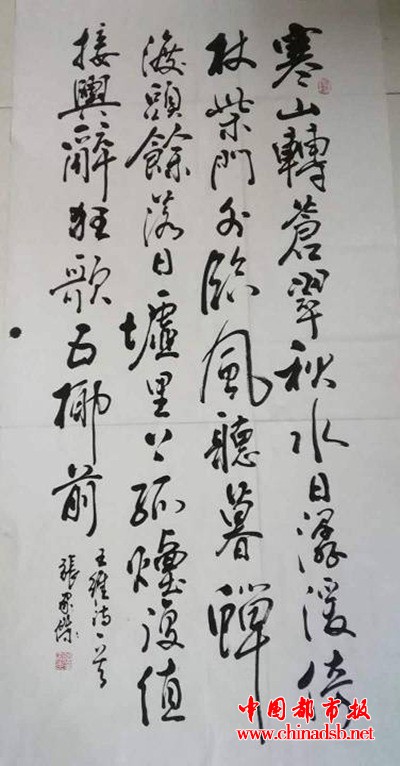 寒山轉蒼翠秋水日潺湲倚
杖柴門外臨風聽暮蟬
渡頭餘落日墟里上孤煙復值
接輿醉狂歌五柳前
王維詩一首
張家
中国都市报
www.chinadsb.net